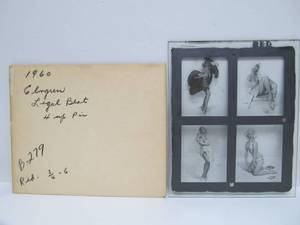 1960
Elvgren
Legal Blot
4 up Pin
B-279
Red. 3/6-6